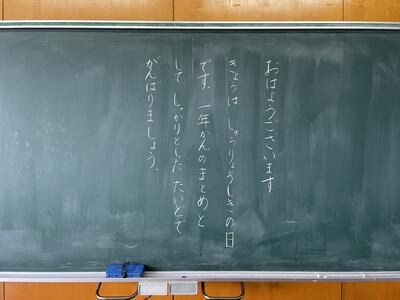 おはようございます
きょうは しゅうりょうしきの日
です。一年かんのまとめと
して しっかりとした たいどで
がんばりましょう。